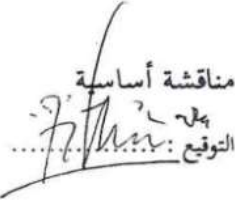 مناقشة أساسية
التوقيع :..............